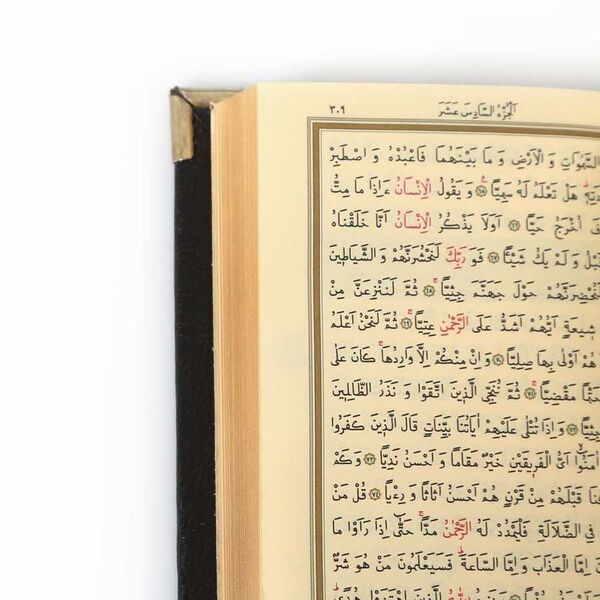 ٣٠٩ اَلْجُزْءُ السَّادِسَ عَشَرَ
السَّمٰوَاتِ وَ الْاَرْضِ وَ مَا بَيْنَهُمَا فَاعْبُدْهُ وَ اصْطَبِرْ
هَلْ تَعْلَمُ لَهُ سَمِيًّاۚ ﴿٦٥﴾ وَ يَقُولُ الْاِنْسَانُ ءَاِذَا مَا مِتُّ
اُخْرَجُ حَيًّا ﴿٦٦﴾ اَوَلَا يَذْكُرُ الْاِنْسَانُ اَنَّا خَلَقْنَاهُ
وَ لَمْ يَكُ شَيْـًٔا ﴿٦٧﴾ فَوَ رَبِّكَ لَنَحْشُرَنَّهُمْ وَ الشَّيَاطٖينَ
لَنُحْضِرَنَّهُمْ حَوْلَ جَهَنَّمَ جِثِيًّاۚ ﴿٦٨﴾ ثُمَّ لَنَنْزِعَنَّ مِنْ
شٖيعَةٍ اَيُّهُمْ اَشَدُّ عَلَى الرَّحْمٰنِ عِتِيًّاۚ ﴿٦٩﴾ ثُمَّ لَنَحْنُ اَعْلَمُ
هُمْ اَوْلٰى بِهَا صِلِيًّا ﴿٧٠﴾ وَ اِنْ مِنْكُمْ اِلَّا وَارِدُهَاۚ كَانَ عَلٰى
حَتْمًا مَقْضِيًّاۚ ﴿٧١﴾ ثُمَّ نُنَجِّى الَّذٖينَ اتَّقَوْا وَ نَذَرُ الظَّالِمٖينَ
جِثِيًّا ﴿٧٢﴾ وَ اِذَا تُتْلٰى عَلَيْهِمْ اٰيَاتُنَا بَيِّنَاتٍ قَالَ الَّذٖينَ كَفَرُوا
اٰمَنُواۙ اَىُّ الْفَرٖيقَيْنِ خَيْرٌ مَقَامًا وَ اَحْسَنُ نَدِيًّا ﴿٧٣﴾ وَ كَمْ
قَبْلَهُمْ مِنْ قَرْنٍ هُمْ اَحْسَنُ اَثَاثًا وَ رِءْيًا ﴿٧٤﴾ قُلْ مَنْ
فِى الضَّلَالَةِ فَلْيَمْدُدْ لَهُ الرَّحْمٰنُ مَدًّاۚ حَتّٰٓى اِذَا رَاَوْا مَا
اِمَّا الْعَذَابَ وَ اِمَّا السَّاعَةَ فَسَيَعْلَمُونَ مَنْ هُوَ شَرٌّ